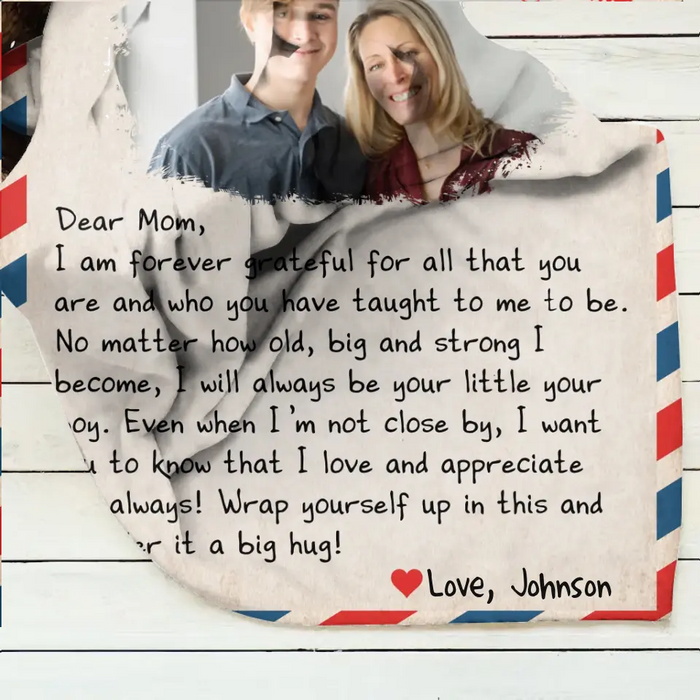 Dear Mom,
I am forever grateful for all that you
are and who you have taught to me to be.
No matter how old, big and strong I
become, I will always be your little your
oy. Even when I'm not close by, I want
u to know that I love and appreciate
always! Wrap yourself up in this and
er it a big hug!
Love, Johnson